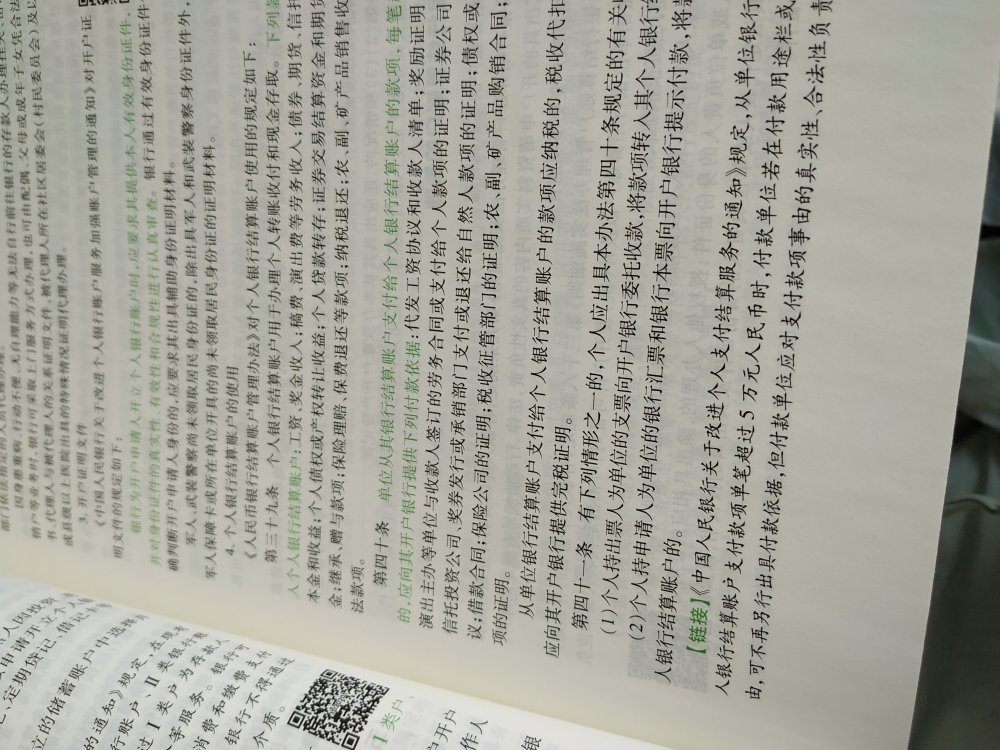 部门依法指定的人员代理办理。
因身患重病、行动不便、无自理能力等无法自行前往银行的存款人办理挂失、密
销户等业务时,银行可采取上门服务方式办理,也可由配偶、父母或成年子女凭合法
书、代理人与被代理人的关系证明文件、被代理人所在社区居委会(村民委员会)及以
或县级以上医院出具的特殊情况证明代理办理。
3. 开户证明文件
《中国人民银行关于改进个人银行账户服务加强账户管理的通知》对开户证
明文件的规定如下:
银行为开户申请人开立个人银行账户时,应要求其提供本人有效身份证件,
并对身份证件的真实性、有效性和合规性进行认真审查。银行通过有效身份证件
确判断开户申请人身份的,应要求其出具辅助身份证明材料。
军人、武装警察尚未领取居民身份证的,除出具军人和武装警察身份证件外,
军人保障卡或所在单位开具的尚未领取居民身份证的证明材料。
4. 个人银行结算账户的使用
《人民币银行结算账户管理办法》对个人银行结算账户使用的规定如下:
第三十九条 个人银行结算账户用于办理个人转账收付和现金存取。下列款
入个人银行结算账户:工资、奖金收入;稿费、演出费等劳务收入;债券、期货、信托
本金和收益;个人债权或产权转让收益;个人贷款转存;证券交易结算资金和期货
金;继承、赠与款项;保险理赔、保费退还等款项;纳税退还;农、副、矿产品销售收
法款项。
第四十条 单位从其银行结算账户支付给个人银行结算账户的款项,每笔
的,应向其开户银行提供下列付款依据:代发工资协议和收款人清单;奖励证明
演出主办等单位与收款人签订的劳务合同或支付给个人款项的证明;证券公司
信托投资公司、奖券发行或承销部门支付或退还给自然人款项的证明;债权或
议;借款合同;保险公司的证明;税收征管部门的证明;农、副、矿产品购销合同;
项的证明。
从单位银行结算账户支付给个人银行结算账户的款项应纳税的,税收代扣
应向其开户银行提供完税证明。
第四十一条 有下列情形之一的,个人应出具本办法第四十条规定的有关收
(1)个人持出票人为单位的支票向开户银行委托收款,将款项转入其个人银行结
(2)个人持申请人为单位的银行汇票和银行本票向开户银行提示付款,将款
人银行结算账户的。
【链接】《中国人民银行关于改进个人支付结算服务的通知》规定,从单位银行
人银行结算账户支付款项单笔超过5万元人民币时,付款单位若在付款用途栏或
由,可不再另行出具付款依据,但付款单位应对支付款项事由的真实性、合法性负责
人因投资
申请开立个人
、定期贷记、借记卡
立的储蓄账户中选择
的通知》规定,在现
行账户、Ⅱ类银行账
过Ⅰ类户为存款人
等服务。银行可
消费和缴费支付
银行不得通过
介质。
Ⅰ类户、
户开户
作人
银